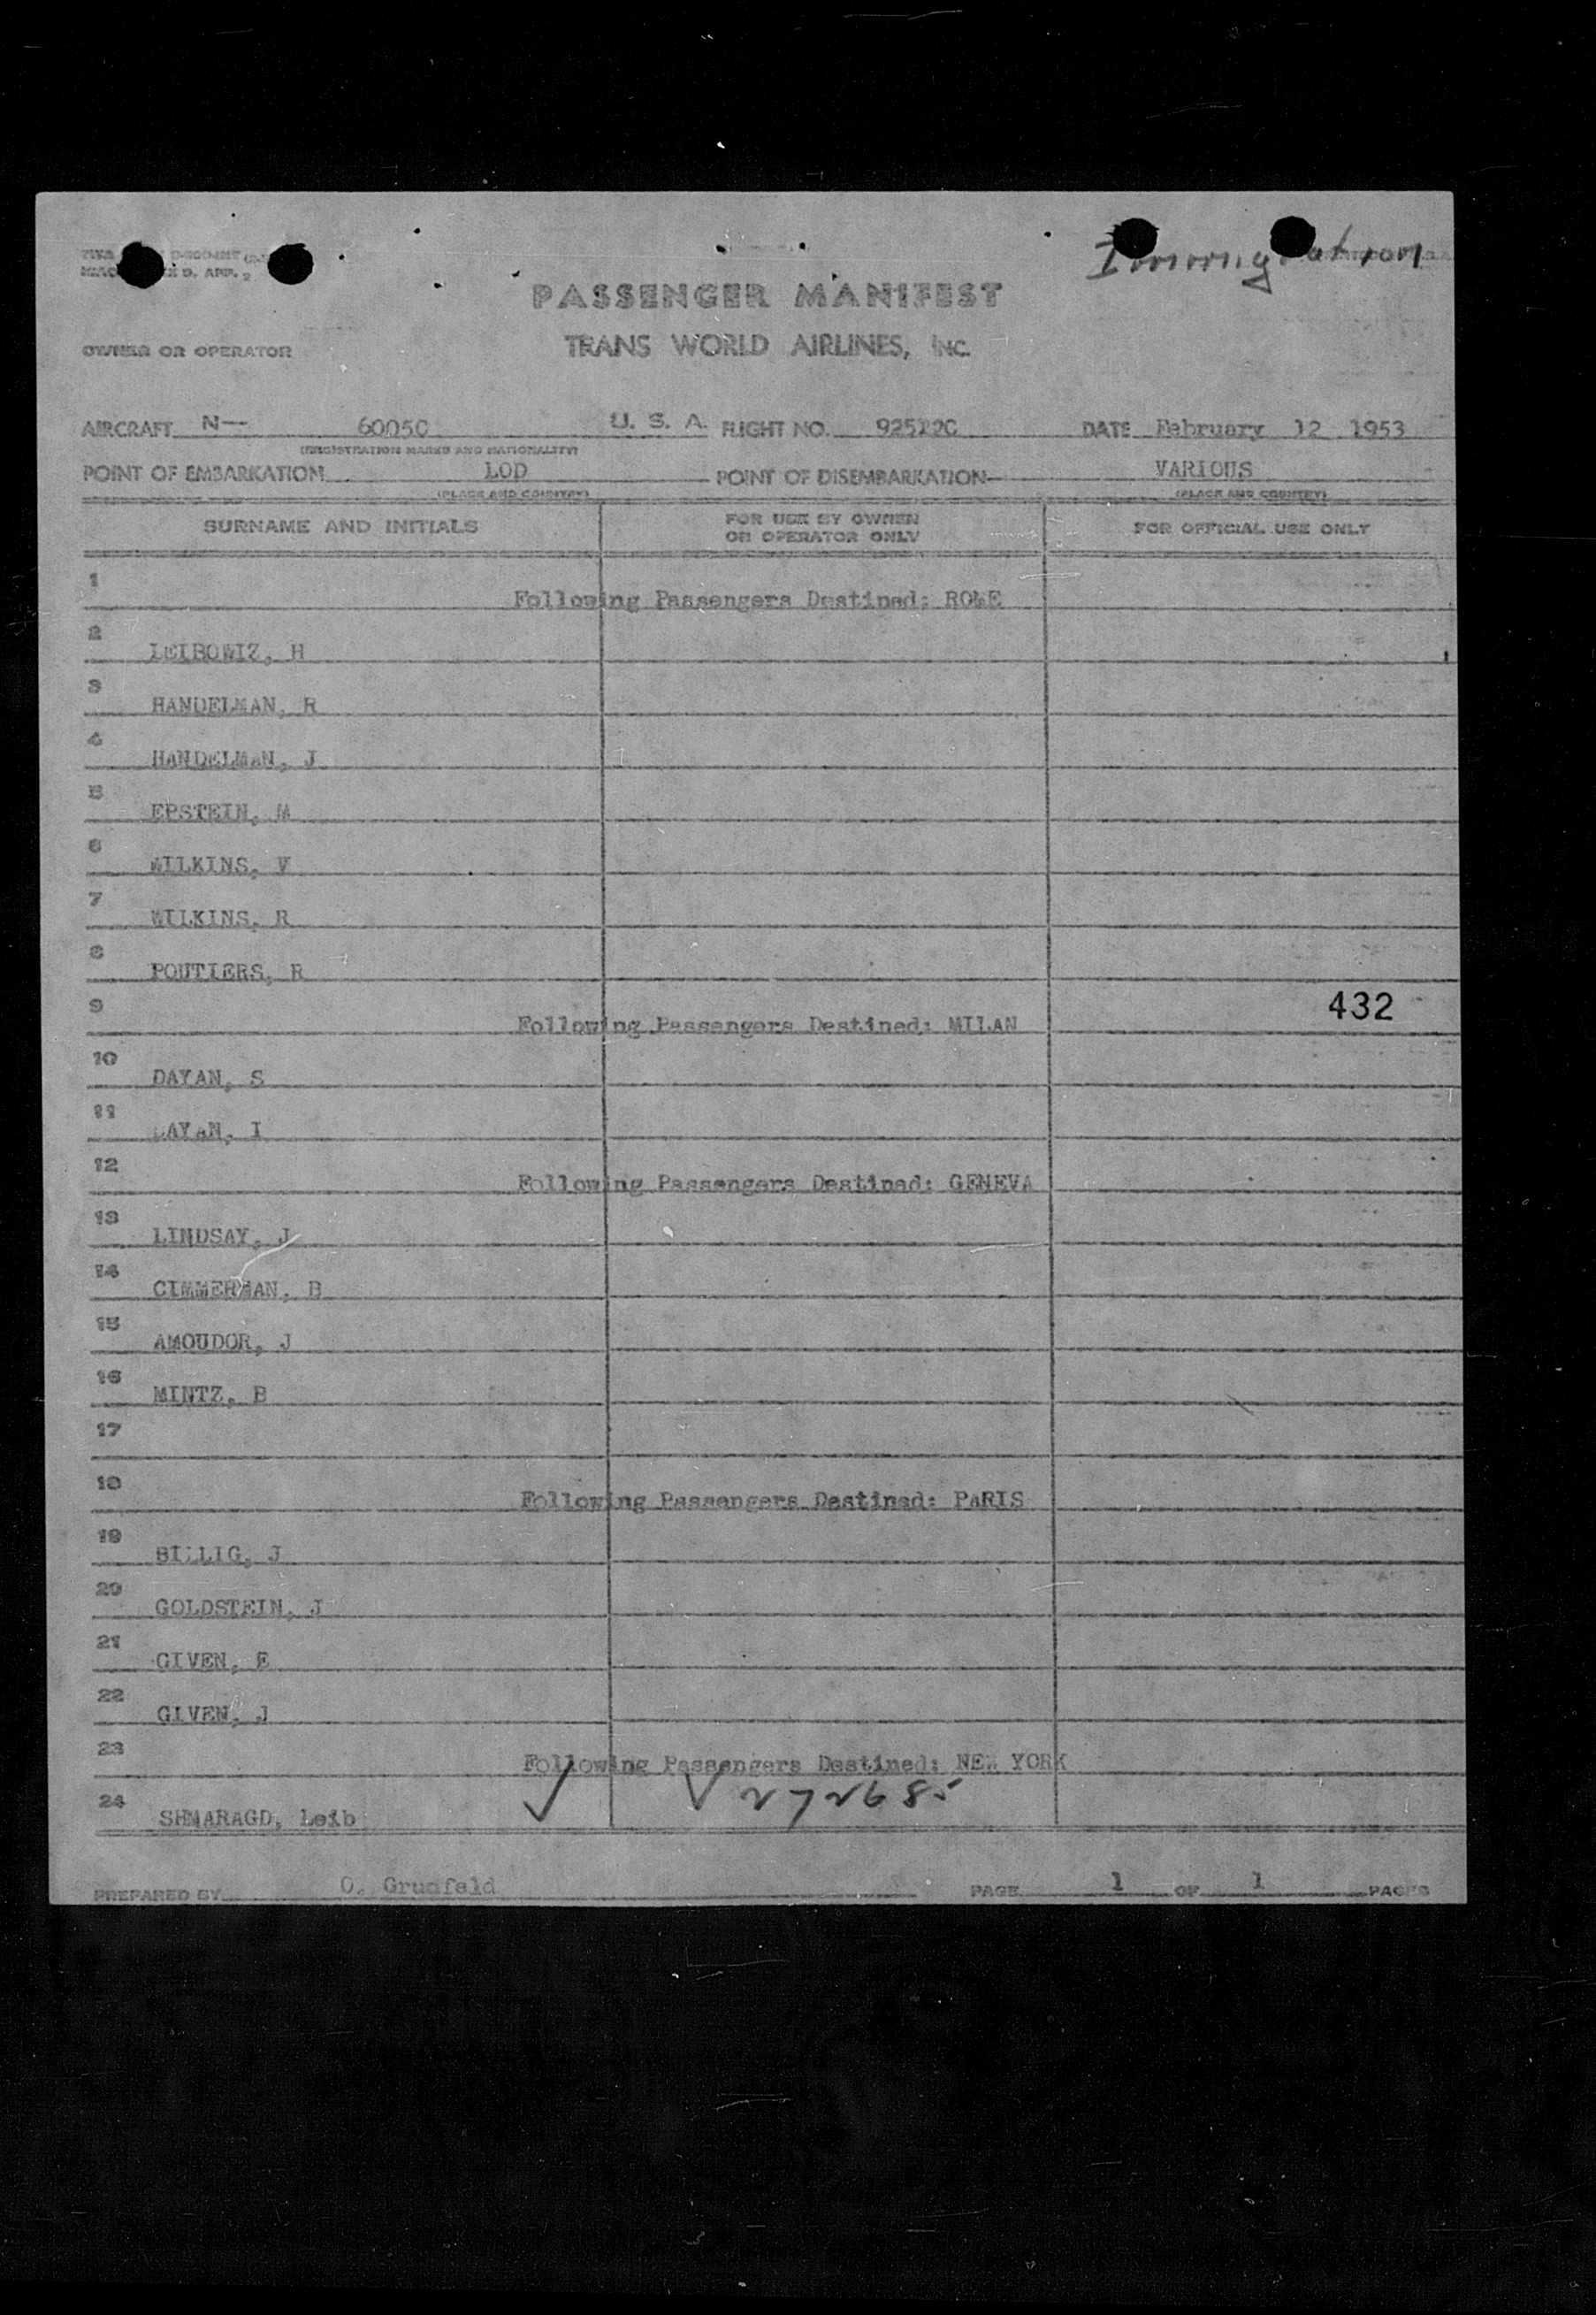 Immigration
PASSENGER MANIFEST
OWNER OR OPERATOR TRANS WORLD AIRLINES, INC.
AIRCRAFT N— 6005C U. S. A. FLIGHT NO. DATE February 12 1953
(REGISTRATION MARKS AND NATIONALITY)
POINT OF EMBARKATION LOD POINT OF DISEMBARKATION VARIOUS
(PLACE AND COUNTRY) (PLACE AND COUNTRY)
SURNAME AND INITIALS FOR USE BY OWNER OR OPERATOR ONLY FOR OFFICIAL USE ONLY
1 Following Passengers Destined: ROME
2 LEIBOWIZ, H
3 HANDELMAN, R
4 HANDELMAN, J
5 EPSTEIN, M
6 WILKINS, V
7 WILKINS, R
8 POUTIERS, R
432
9 Following Passengers Destined: MILAN
10 DAYAN, S
11 DAYAN, I
12 Following Passengers Destined: GENEVA
13 LINDSAY, J
14 CIMMERMAN, B
15 AMOUDOR, J
16 MINTZ, B
17
18 Following Passengers Destined: PARIS
19 BILLIG, J
20 GOLDSTEIN, J
21 GIVEN, E
22 GIVEN, J
23 Following Passengers Destined: NEW YORK
24 SHMARAGD, Leib ✓ ✓ 272685
PREPARED BY O. Grunfeld PAGE 1 OF 1 PAGES